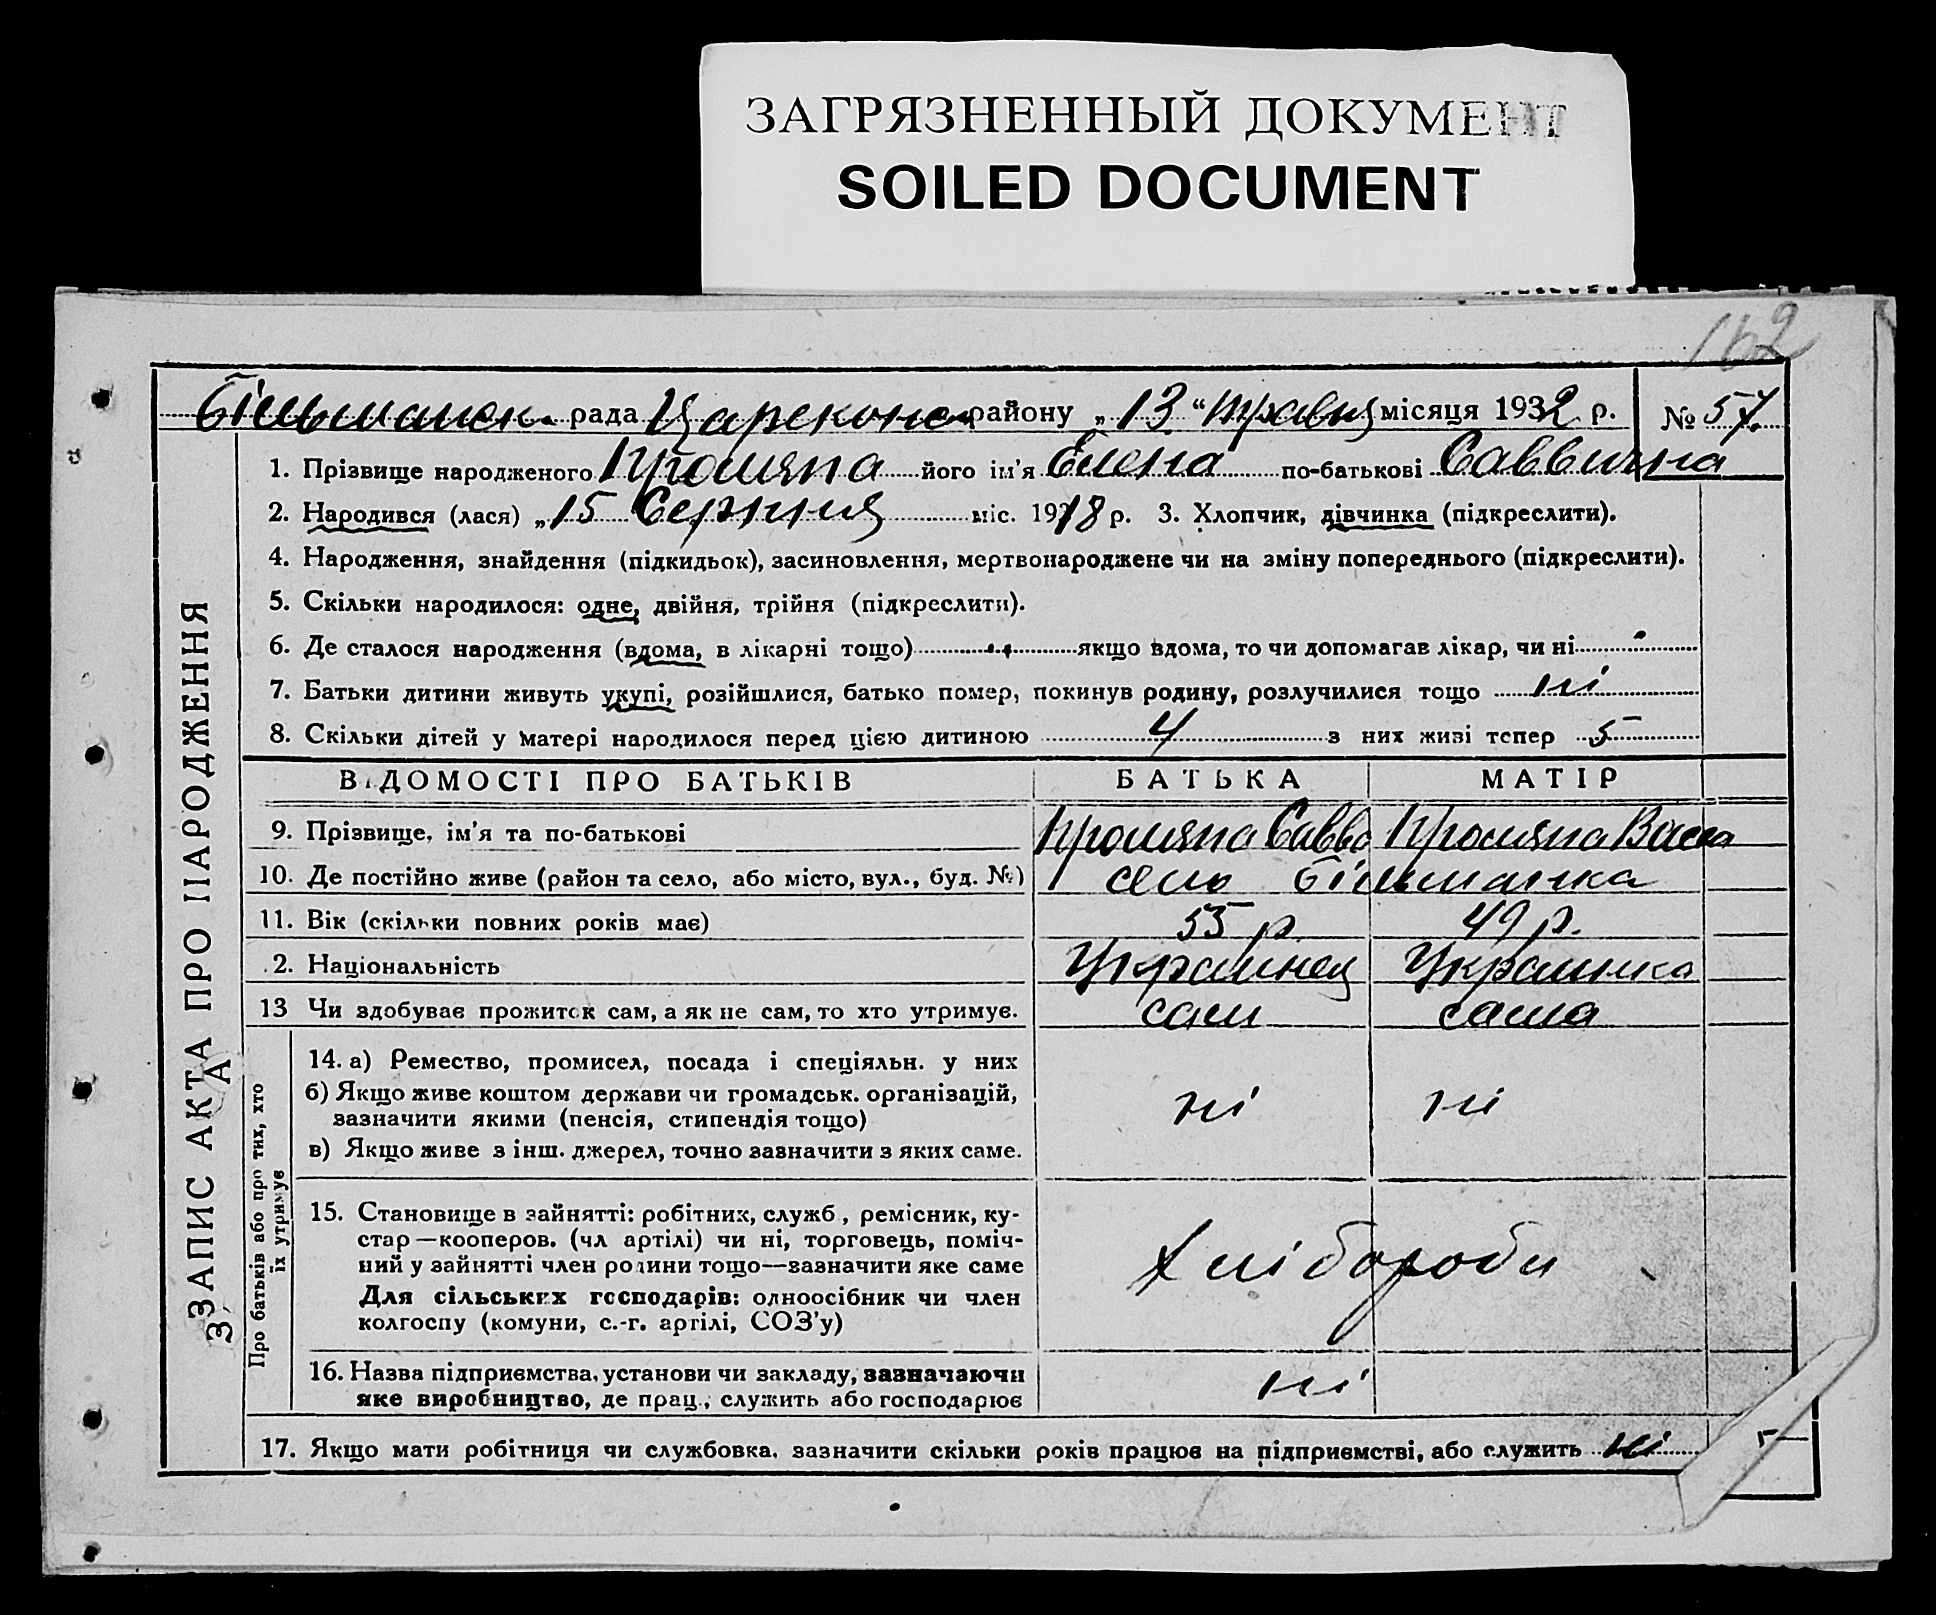 ЗАГРЯЗНЕННЫЙ ДОКУМЕНТ
SOILED DOCUMENT
162
рада району „ 13 “ травня місяця 1932 р. № 57.
1. Прізвище народженого його ім'я Елена по-батькові Саввична
2. Народився (лася) „ 15 Серпня міс. 1918 р. 3. Хлопчик, дівчинка (підкреслити).
4. Народження, знайдення (підкидьок), засиновлення, мертвонароджене чи на зміну попереднього (підкреслити).
5. Скільки народилося: одне, двійня, трійня (підкреслити).
6. Де сталося народження (вдома, в лікарні тощо) якщо вдома, то чи допомагав лікар, чи ні
7. Батьки дитини живуть укупі, розійшлися, батько помер, покинув родину, розлучилися тощо ні
8. Скільки дітей у матері народилося перед цією дитиною 4 з них живі тепер 5
ВІДОМОСТІ ПРО БАТЬКІВ БАТЬКА МАТІР
9. Прізвище, ім'я та по-батькові Савва Васса
10. Де постійно живе (район та село, або місто, вул., буд. №) село Більманка
11. Вік (скільки повних років має) 55 р. 49 р.
12. Національність Украинец Украинка
13 Чи здобуває прожиток сам, а як не сам, то хто утримує. сам сама
14. а) Ремество, промисел, посада і спеціяльн. у них
б) Якщо живе коштом держави чи громадськ. організацій,
зазначити якими (пенсія, стипендія тощо) ні ні
в) Якщо живе з інш. джерел, точно зазначити з яких саме.
15. Становище в зайнятті: робітник, служб., ремісник, ку-
стар—кооперов. (чл артілі) чи ні, торговець, поміч-
ний у зайнятті член родини тощо—зазначити яке саме Хлібороби
Для сільських господарів: одноосібник чи член
колгоспу (комуни, с.-г. артілі, СОЗ'у)
16. Назва підприємства, установи чи закладу, зазначаючи
яке виробництво, де прац., служить або господарює ні
17. Якщо мати робітниця чи службовка, зазначити скільки років працює на підприємстві, або служить ні
ЗАПИС АКТА ПРО НАРОДЖЕННЯ
Про батьків або про тих, хто
їх утримує